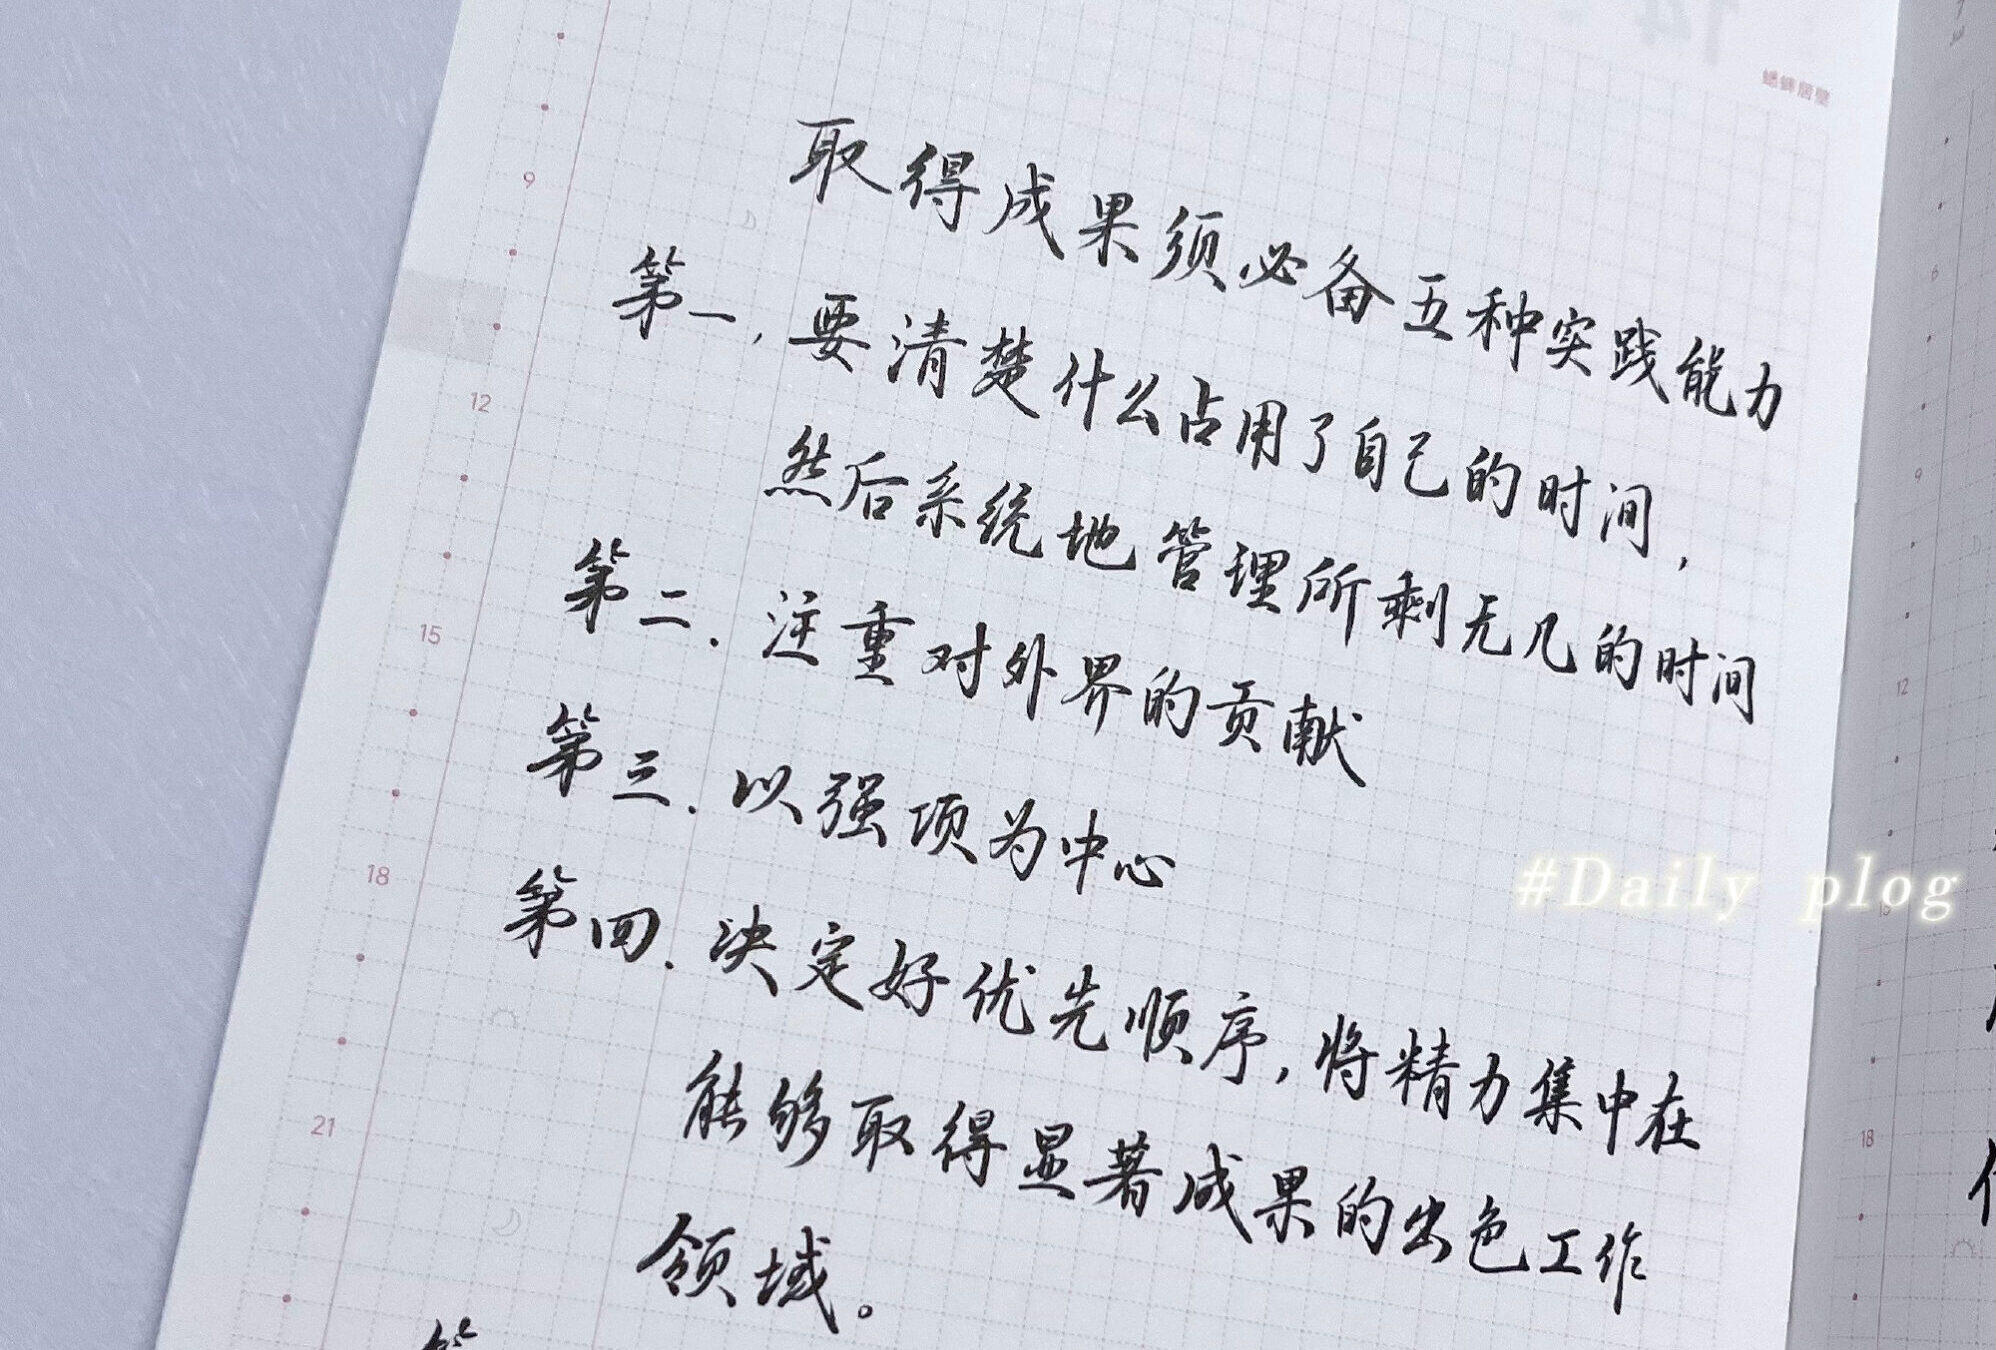 取得成果须必备五种实践能力
第一,要清楚什么占用了自己的时间,
然后系统地管理所剩无几的时间
第二.注重对外界的贡献
第三.以强项为中心
第四.决定好优先顺序,将精力集中在
能够取得显著成果的出色工作
领域。
第
#Daily plog
9
12
15
18
21
14
蟋蟀居壁
9
12
18